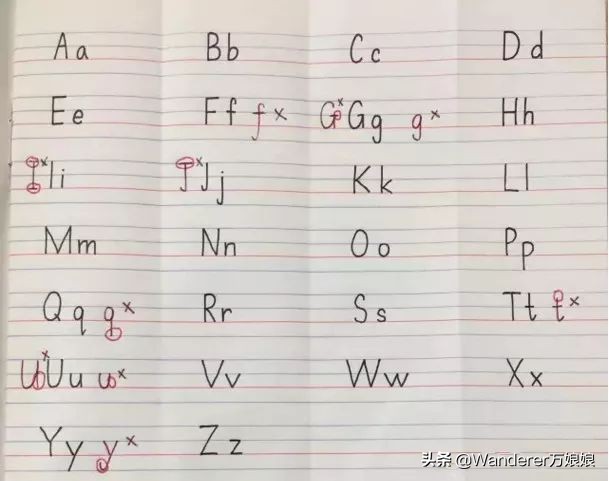 Aa Bb Cc Dd
Ee Ff f× G×Gg g× Hh
I×Ii J×Jj Kk Ll
Mm Nn Oo Pp
Qq q× Rr Ss Tt t×
U×Uu u× Vv Ww Xx
Yy y× Zz
头条 @Wanderer万娘娘